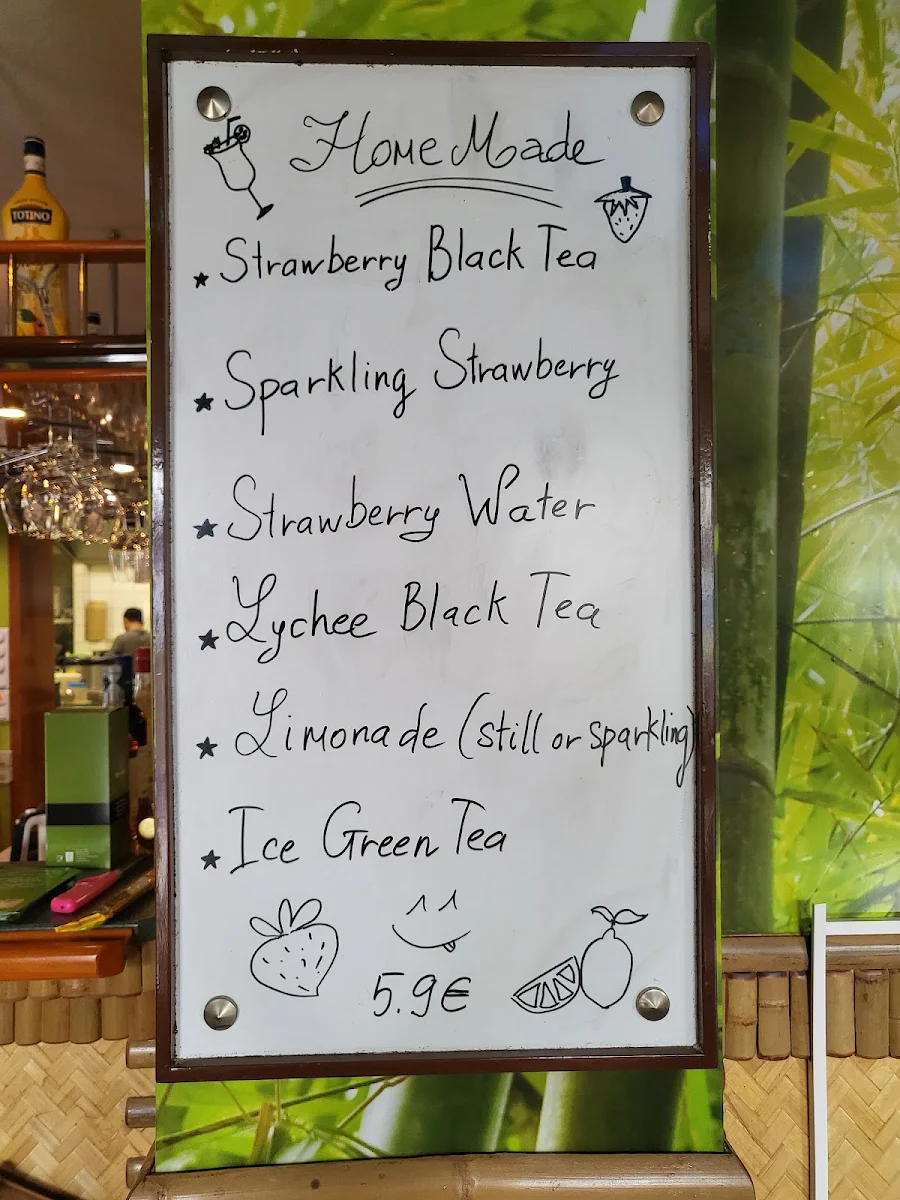 Home Made
★ Strawberry Black Tea
★ Sparkling Strawberry
★ Strawberry Water
★ Lychee Black Tea
★ Limonade (still or sparkling)
★ Ice Green Tea
5.9€
TOTINO